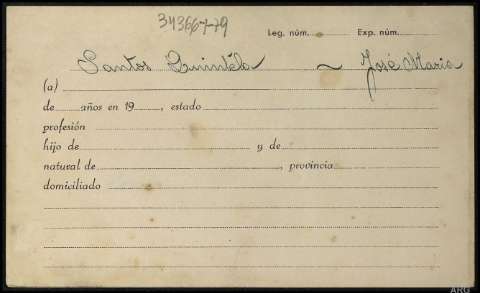 343667-79
Leg. núm. Exp. núm.
Santos Quintela ~ José Maria
(a)
de años en 19 , estado
profesión
hijo de y de
natural de , provincia
domiciliado
ARG